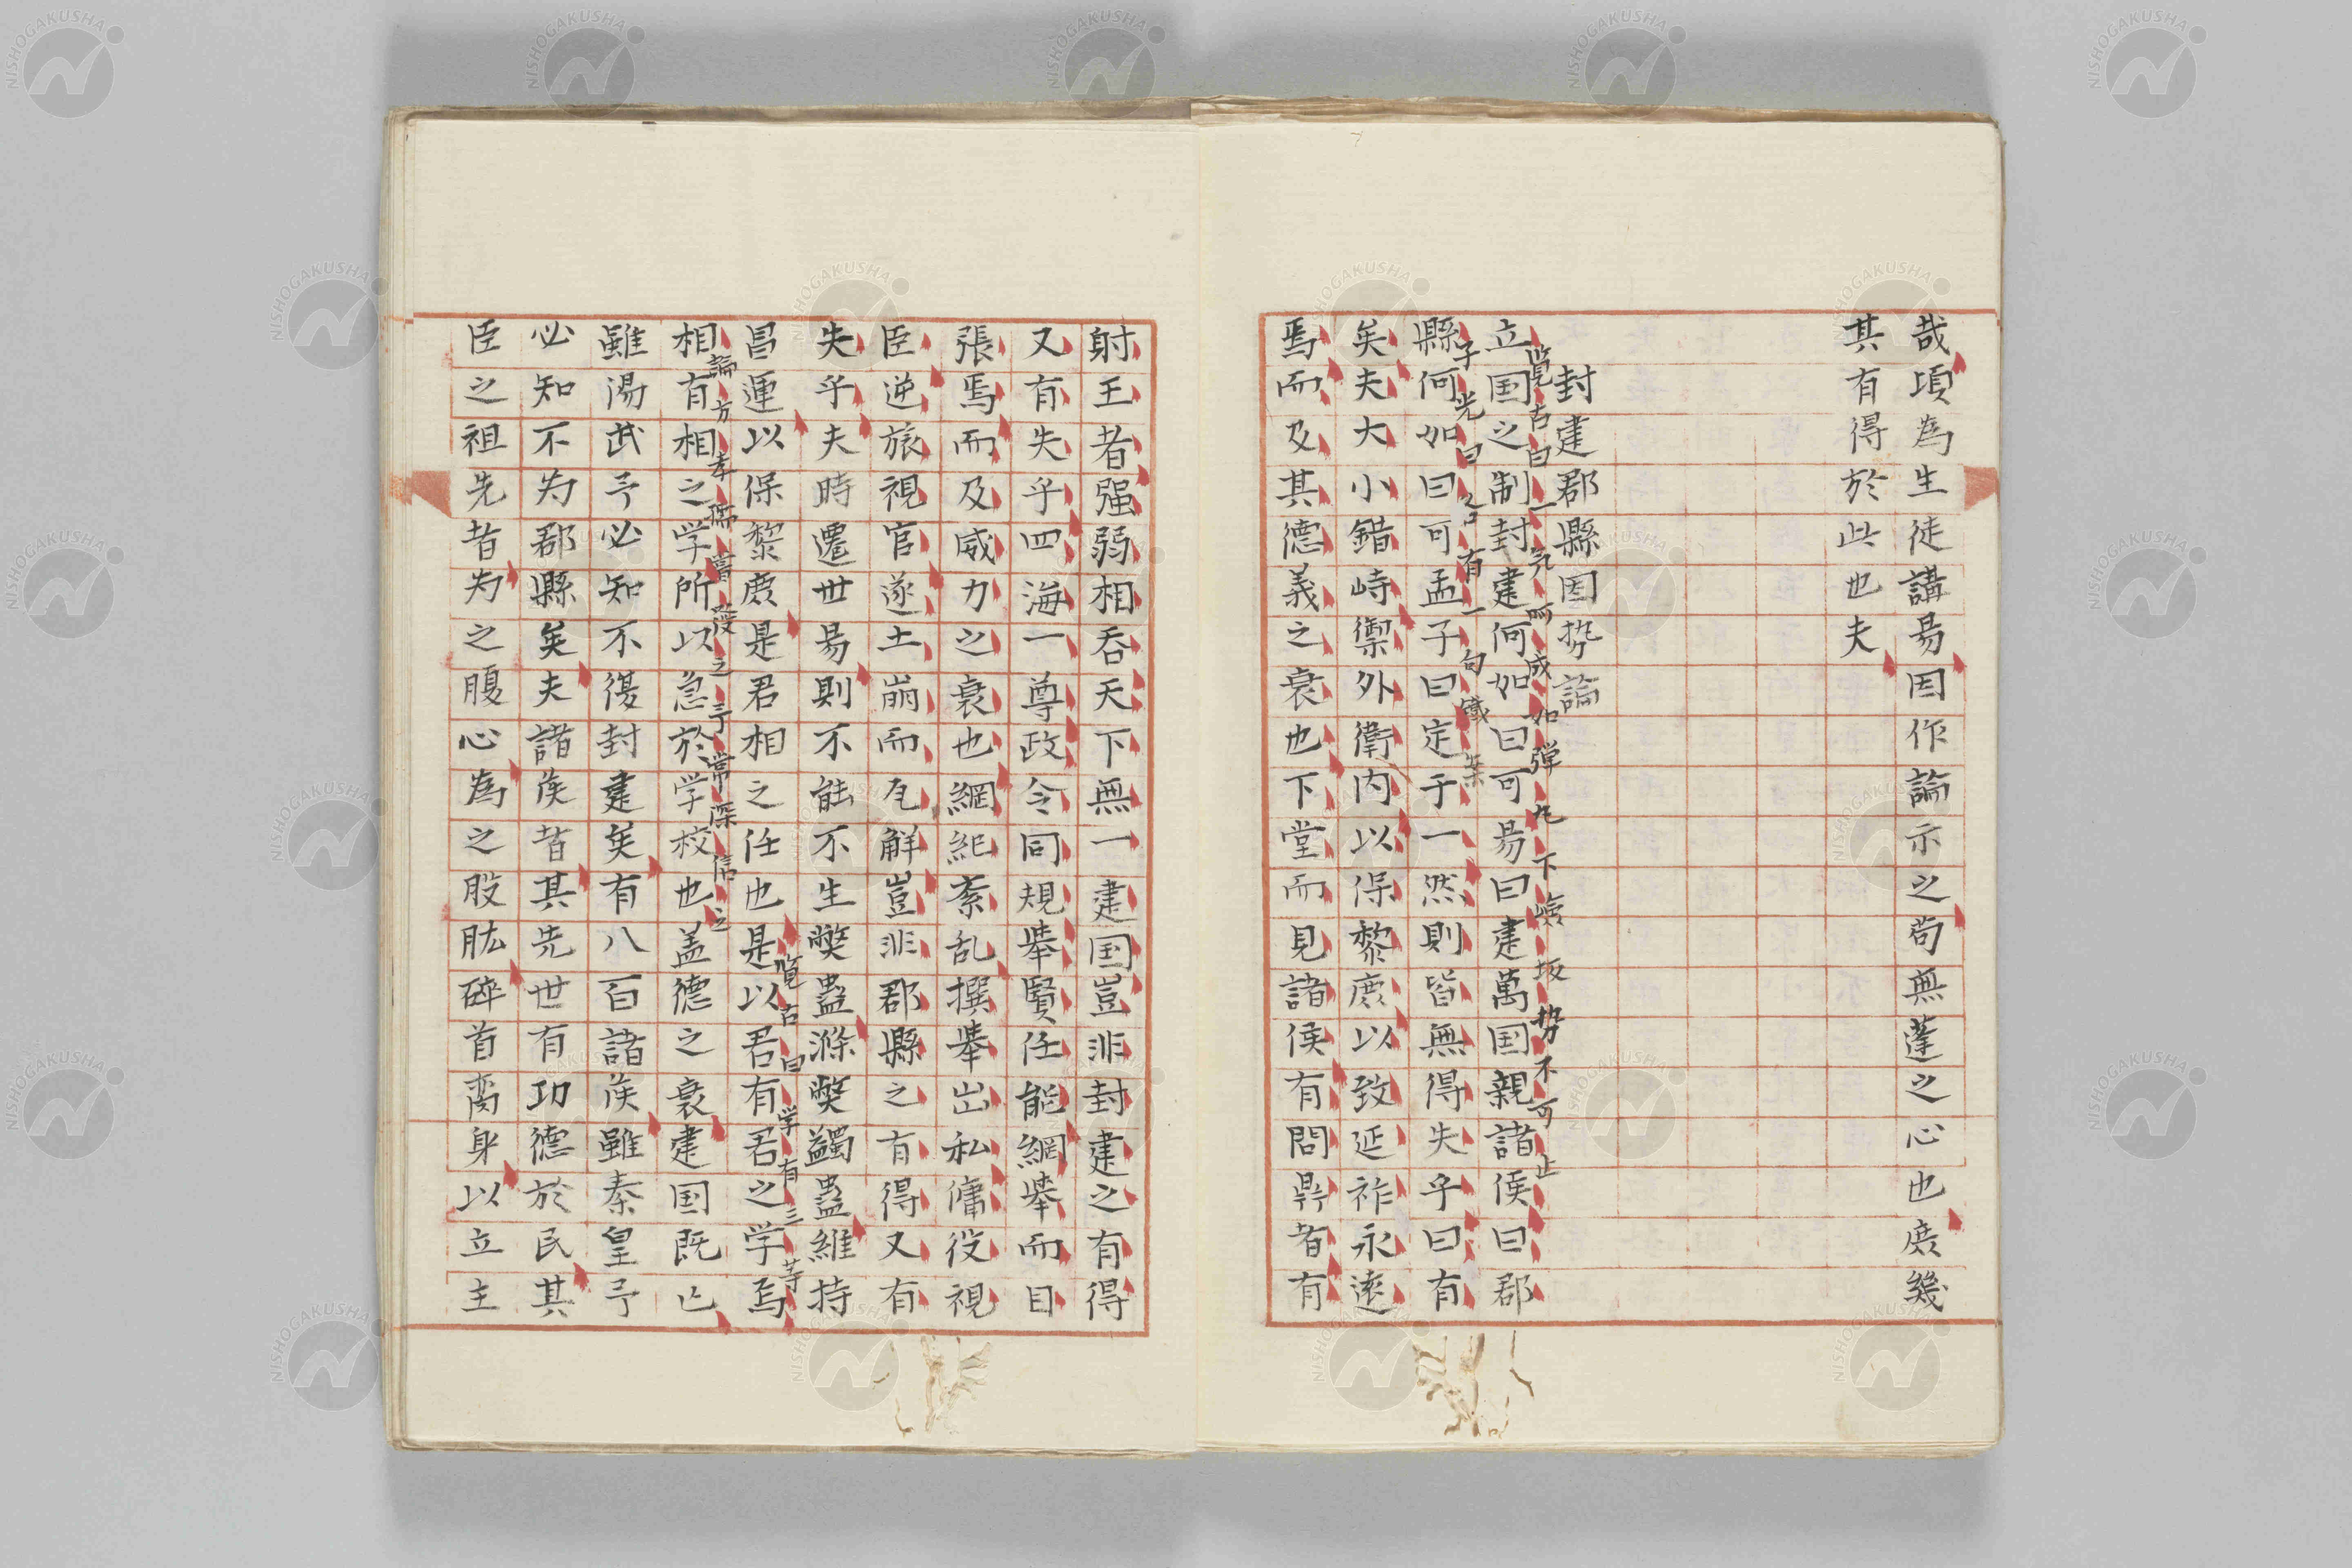 哉頃為生徒講易因作論示之苟無蓬之心也庶幾
其有得於此也夫
封建郡縣因勢論
覧古曰一気呵成如弾丸下峻坂勢不可止
立国之制封建何如曰可易曰建萬国親諸侯曰郡
子光曰
有一句
縣何如曰可孟子曰定于一然則皆無得失乎曰有
矣夫大小錯峙禦外衛内以保黎庶以致延祚永遠
焉而及其德義之衰也下堂而見諸侯有問鼎者有
射王者强弱相呑天下無一建国豈非封建之有得
又有失乎四海一尊政令同規挙賢任能網挙而目
張焉而及威力之衰也綱紀紊乱撰挙出私傭役視
臣逆旅視官遂土崩而瓦解豈非郡縣之有得又有
失乎夫時遷世易則不能不生弊蠱滌弊蠲蠱維持
覧古曰学有三等
昌運以保黎庶是君相之任也是以君有君之学焉
論方孝孺嘗段之予常深信之
相有相之学所以急於学校也盖德之衰建国既亡
雖湯武予必知不復封建矣有八百諸侯雖秦皇予
必知不为郡縣矣夫諸侯者其先世有功德於民其
臣之祖先者为之腹心為之股肱碎首离身以立主
NISHOGAKUSHA